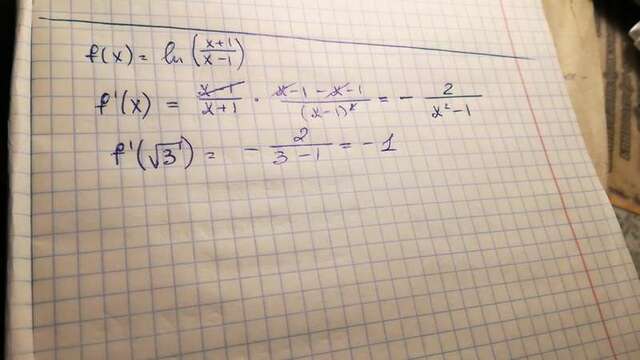 f(x) = ln((x+1)/(x-1))
f'(x) = (x-1)/(x+1) · (x-1-x-1)/(x-1)² = - 2/(x²-1)
f'(√3) = - 2/(3-1) = -1